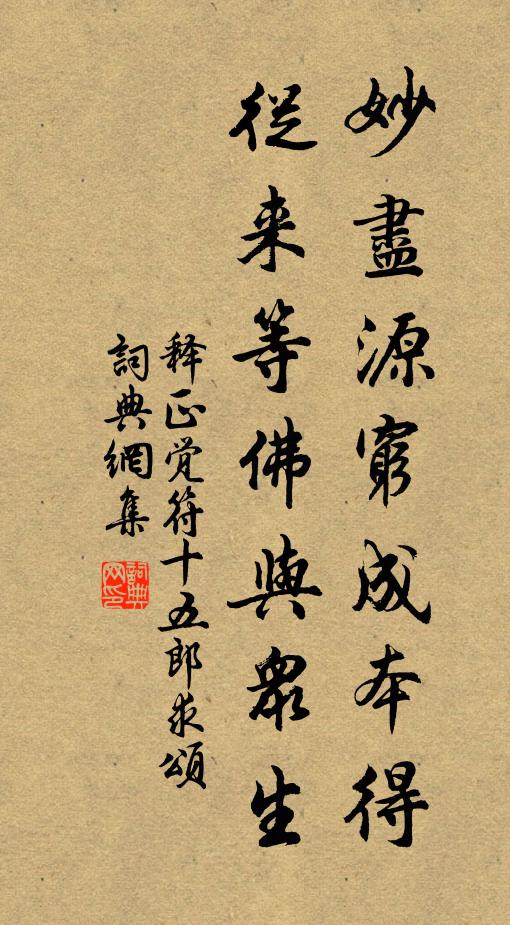 妙盡源窮成本得
從来等佛與眾生
释正觉符十五郎求頌
詞典網集
詞典网印